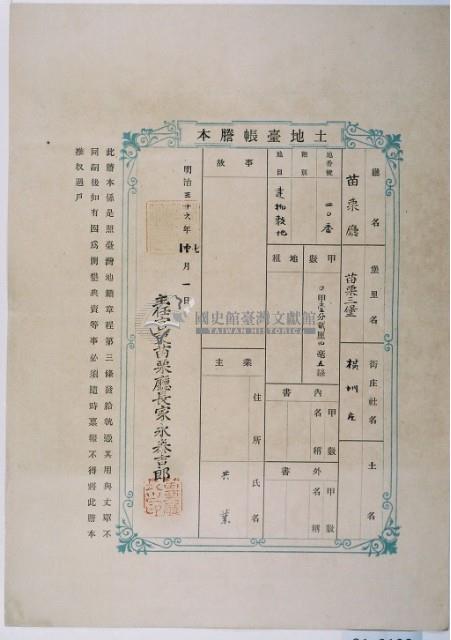 土地臺帳謄本
廳名
苗栗廳
堡里名
苗栗三堡
街庄社名
土名
地番號
四〇番
則別
地目
建物敷地
甲數
地租
內書
甲數
名稱
外書
甲數
名稱
事故
業主
住所
氏名
共業
明治三十六年
月一日
苗栗廳長家永泰吉郎
此謄本係是照臺灣地籍章程第三條發給就憑其用與丈單不
同嗣後如有因爲開墾典賣等事必須隨時稟報不得將此謄本
推收過戶
國史館臺灣文獻館
TAIWAN HISTORICA